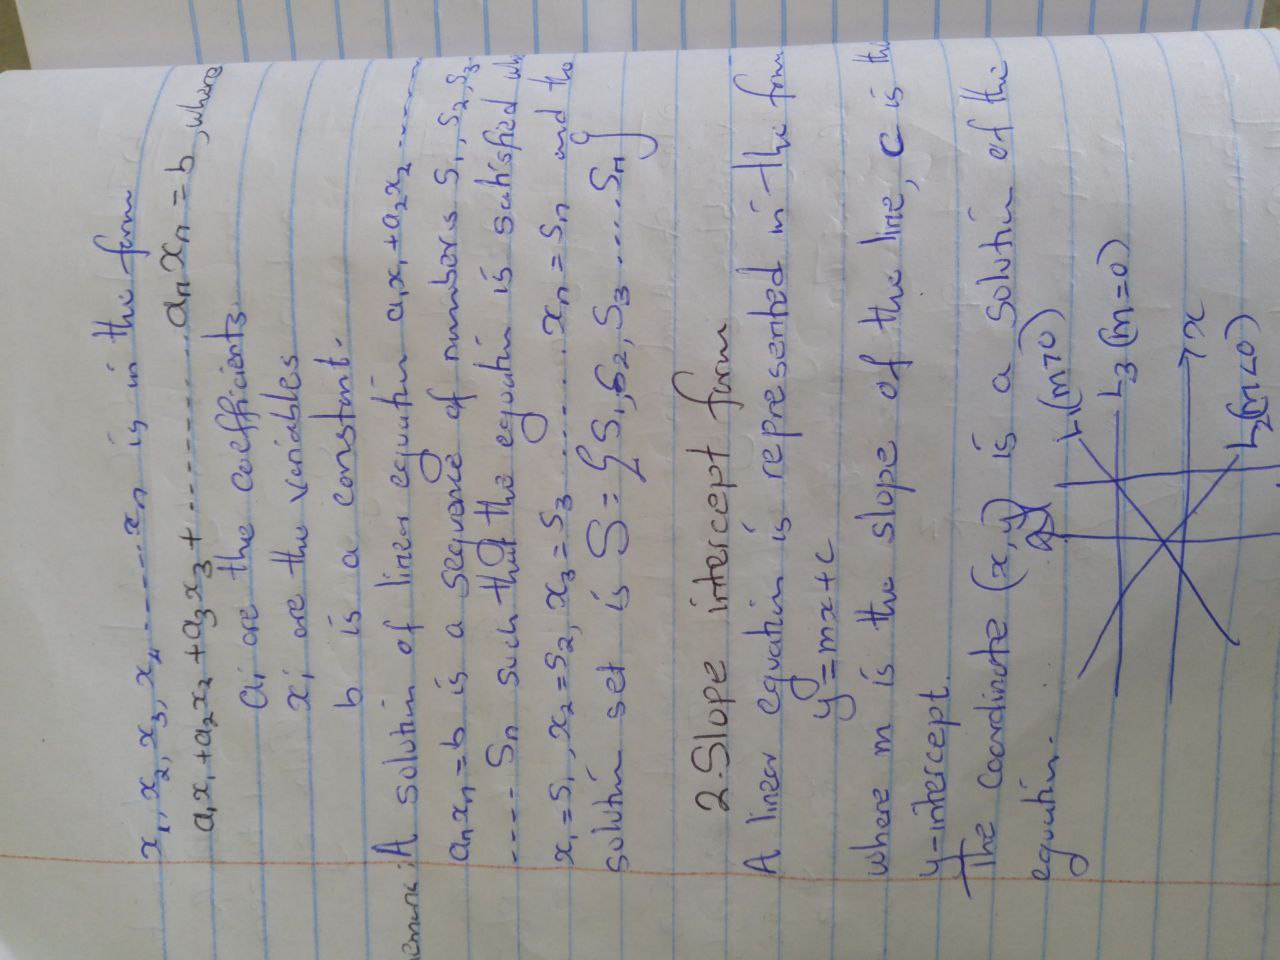 x₁, x₂, x₃, x₄ ------ xn is in the form
a₁x₁ + a₂x₂ + a₃x₃ + --------- anxn = b, where
ai are the coefficients.
xi are the variables
b is a constant.
A solution of linear equation a₁x₁ + a₂x₂ -----
anxn = b is a sequence of numbers S₁, S₂, S₃
---- Sn such that the equation is satisfied
x₁ = S₁, x₂ = S₂, x₃ = S₃ ...... xn = Sn and the
solution set is S = {S₁, S₂, S₃ .... Sn}
2. Slope intercept form
A linear equation is represented in the form
y = mx + c
where m is the slope of the line, c is the
y-intercept.
The coordinate (x, y) is a solution of the
equation.
y
L₁ (m>0)
L₃ (m=0)
x
L₂ (m<0)